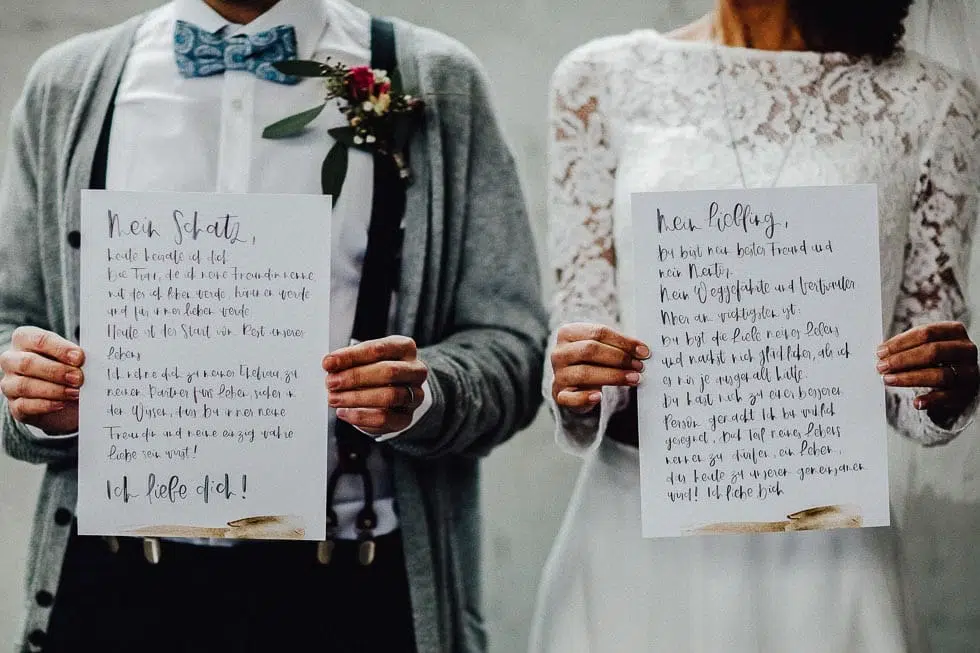 Mein Schatz,
heute heirate ich dich.
Die Frau, die ich meine Freundin nenne,
mit der ich leben werde, träumen werde
und für immer lieben werde.
Heute ist der Start vom Rest unseres
Lebens.
Ich nehme dich zu meiner Ehefrau, zu
meinem Partner fürs Leben, sicher in
dem Wissen, dass Du immer meine
Freundin und meine einzig wahre
Liebe sein wirst!
Ich liebe dich!
Mein Liebling,
Du bist mein bester Freund und
mein Mentor.
Mein Weggefährte und Vertrauter
Aber am wichtigsten ist:
Du bist die Liebe meines Lebens
und machst mich glücklicher, als ich
es mir je ausgemalt hatte.
Du hast mich zu einer besseren
Person gemacht. Ich bin wirklich
gesegnet, Dich Teil meines Lebens
nennen zu dürfen, ein Leben,
das heute zu unserem gemeinsamen
wird! Ich liebe Dich